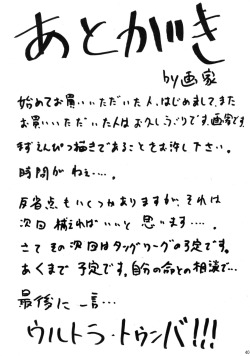 あとがき
by画家
始めてお買いいただいた人、はじめまして、また
お買いいただいた人はお久しぶりです。画家です
まずえんぴつ描きであることをお許し下さい。
時間がねぇ‥‥。
反省点もいくつかありますが、それは
次回 構えればいいと 思います‥‥。
さて その次回はタッグリーグの予定です。
あくまで予定です。自分の命との相談で…
最後に一言…
ウルトラ・トゥンバ!!!
40